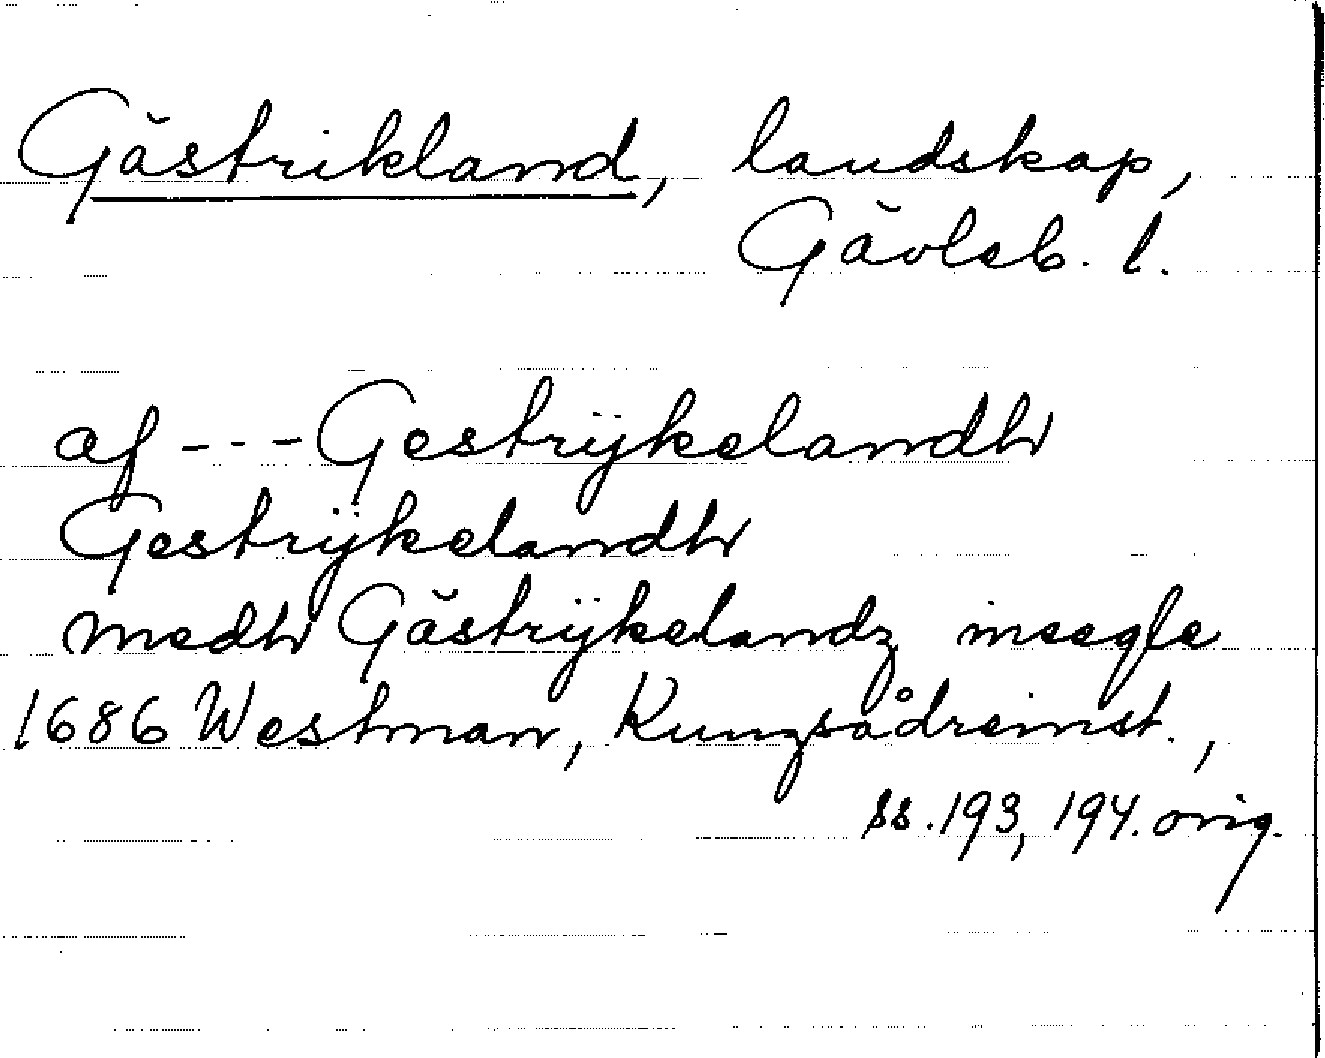 Gästrikland, landskap,
Gävleb. l.
af --- Gestrÿkelandh
Gestrÿkelandh
medh Gästrÿkelandz inseegle
1686 Westman, Kungsådreinst.,
ss. 193, 194. orig.